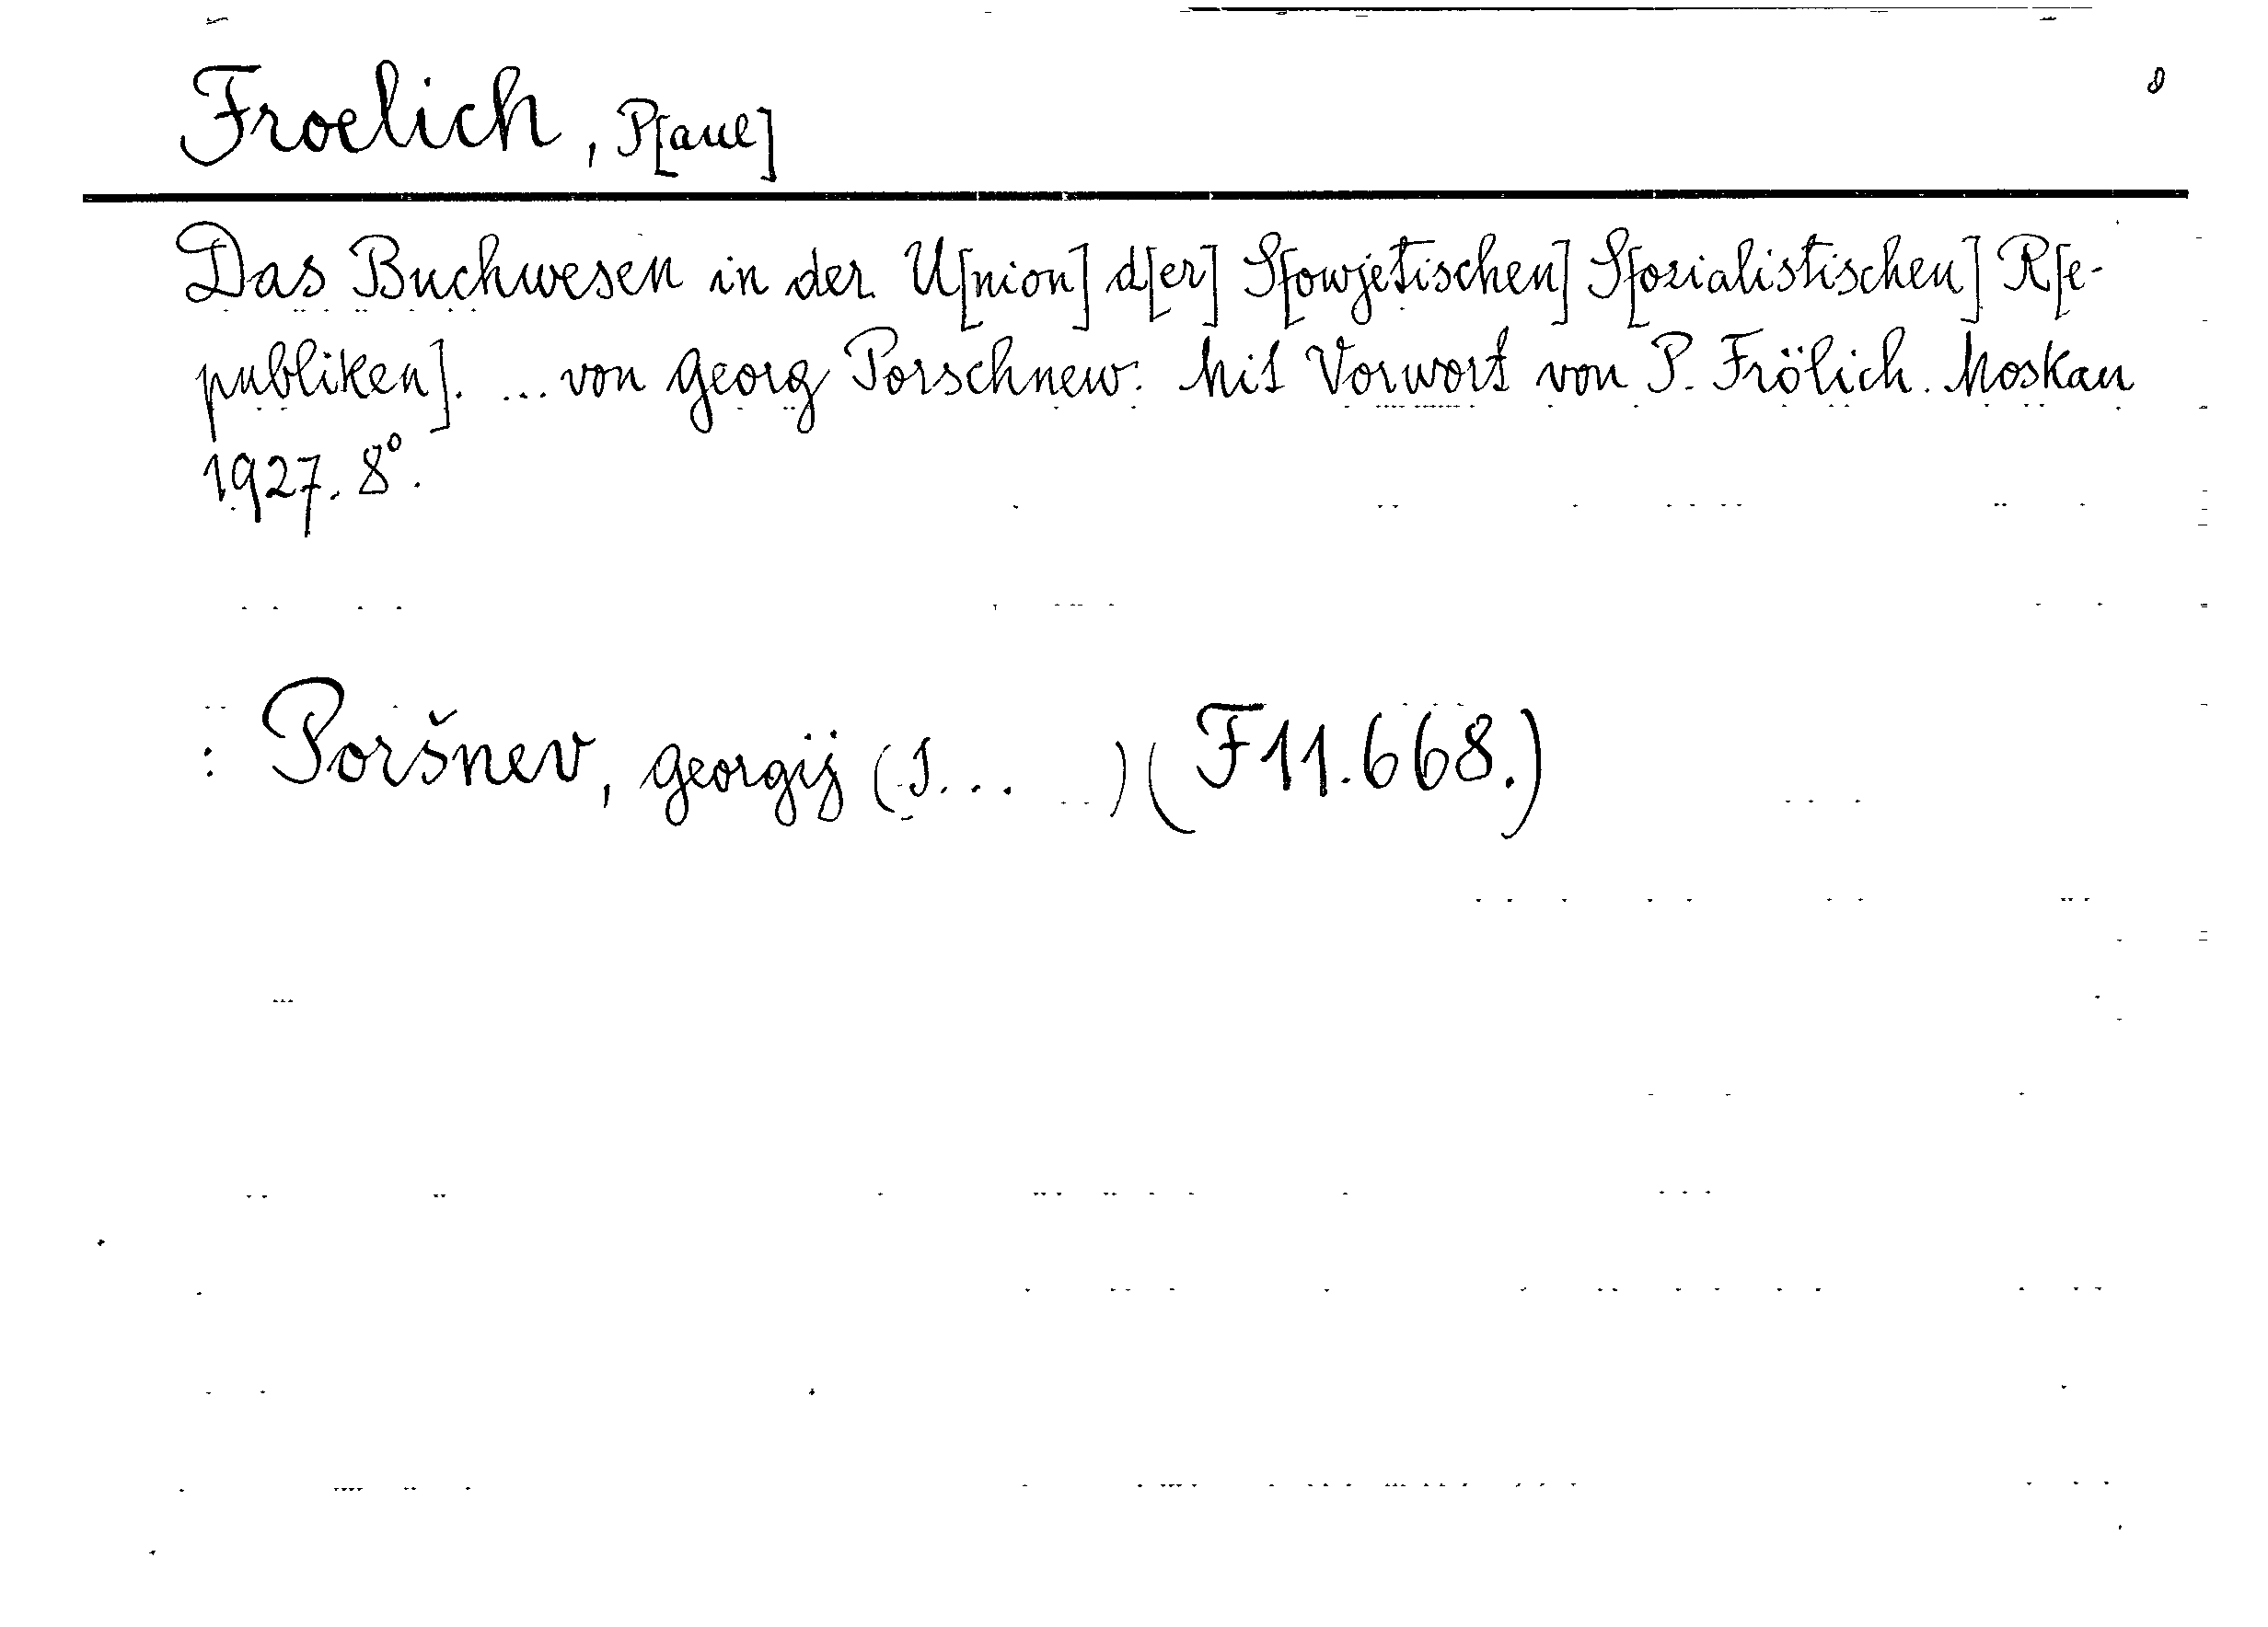 Froelich, P[aul]
Das Buchwesen in der U[nion] d[er] S[owjetischen] S[ozialistischen] R[e-
publiken]. ... von Georg Porschnew. Mit Vorwort von P. Frölich. Moskau
1927. 8°.
: Poršnev, Georgij (I... ) (F11.668.)